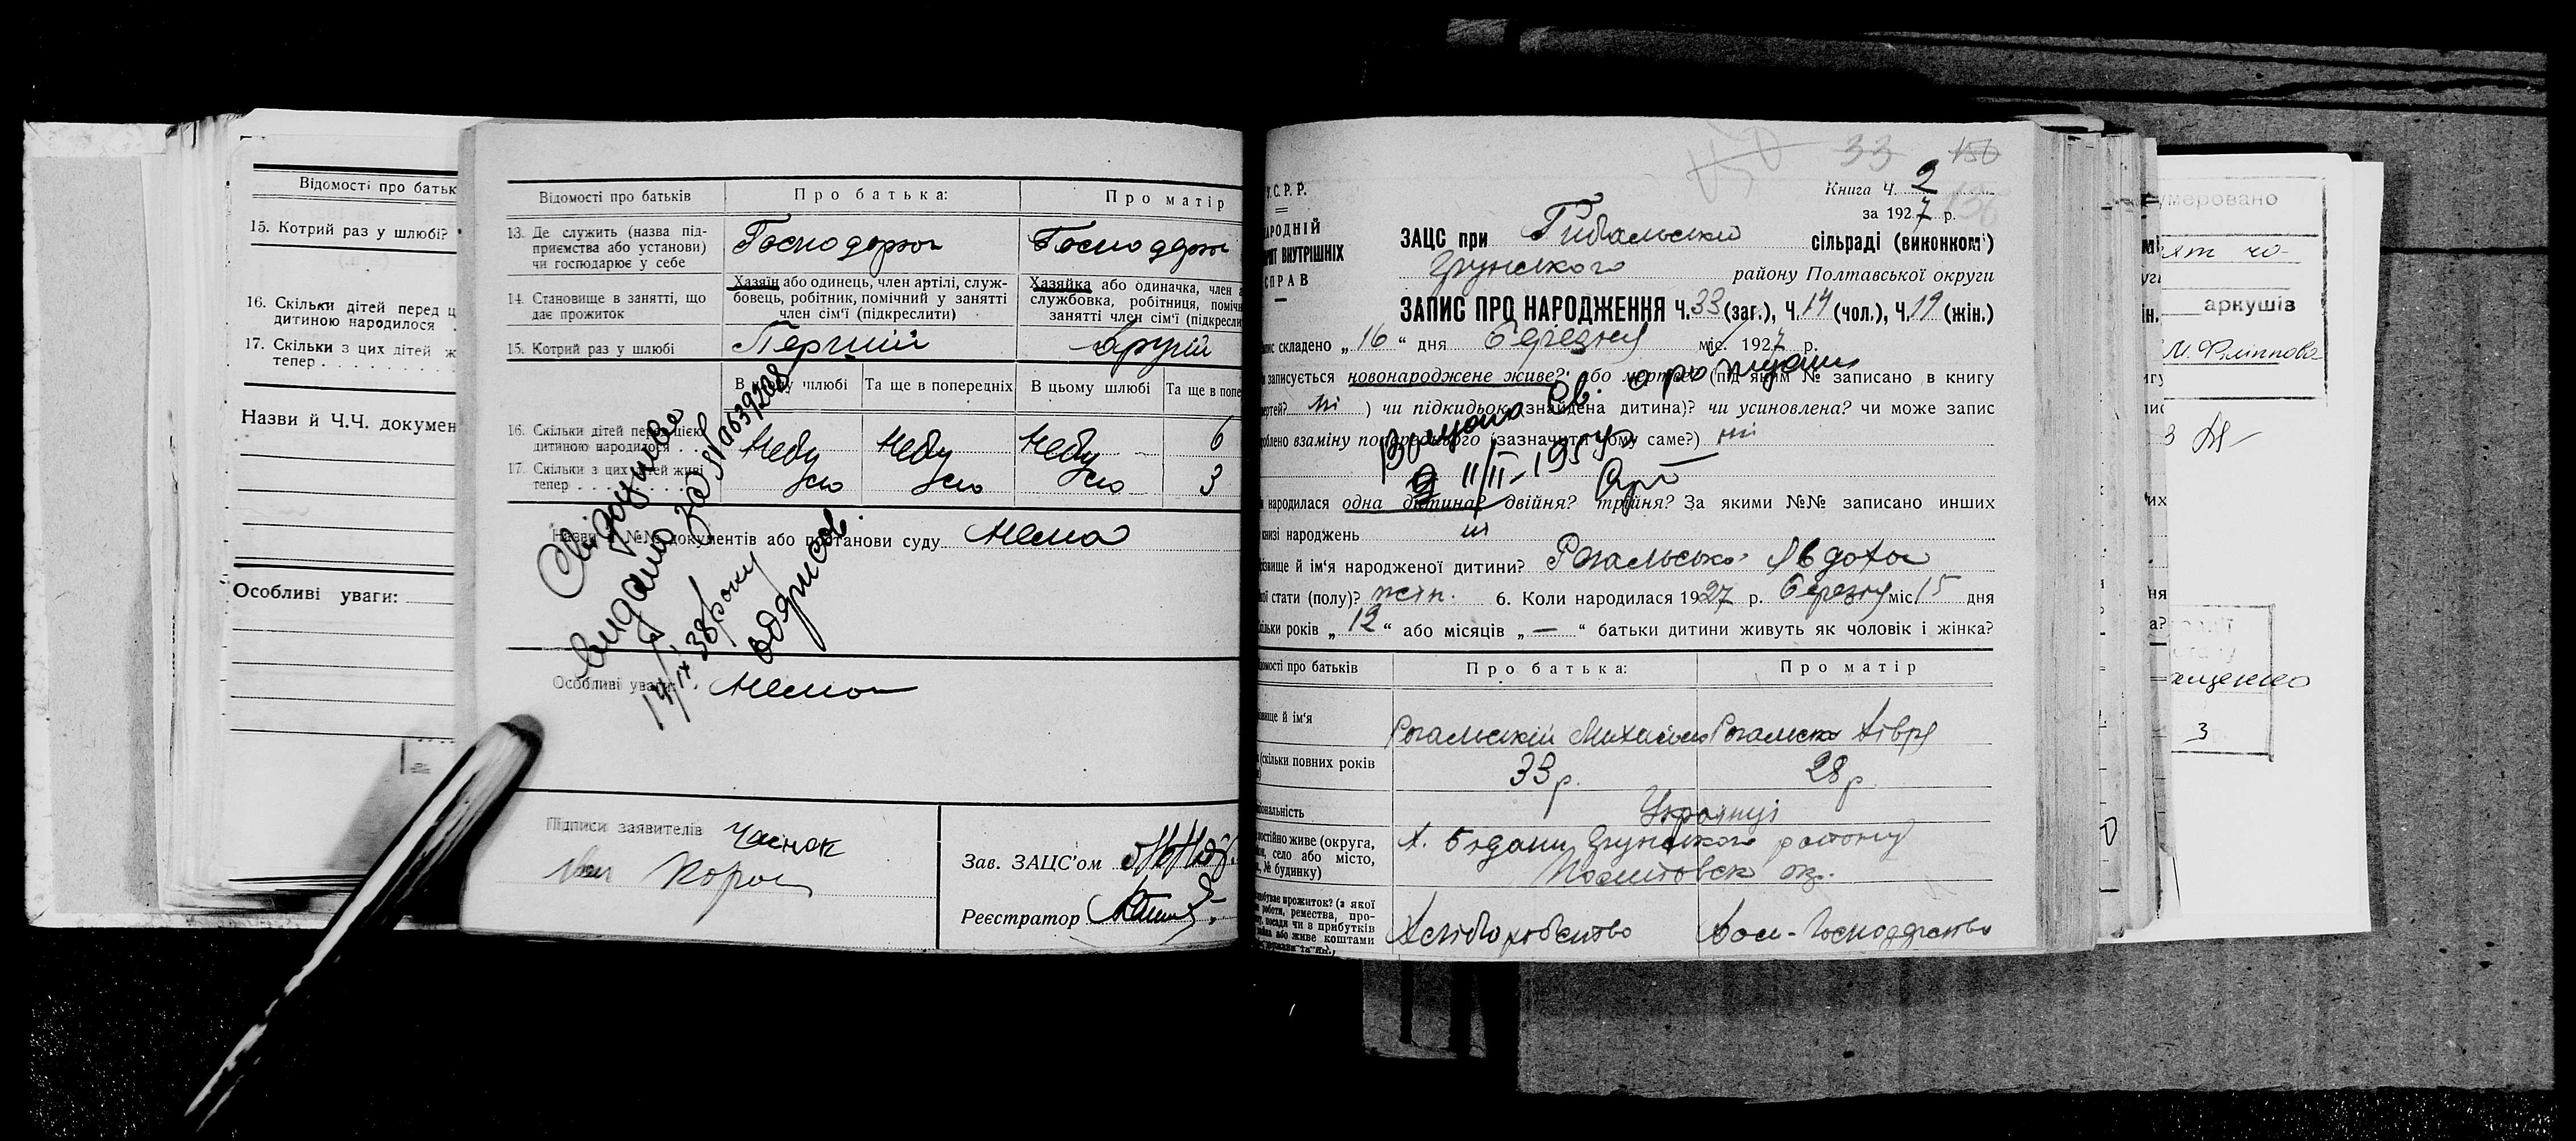 Відомості про батьк
15. Котрий раз у шлюбі?
16. Скільки дітей перед ц
дитиною народилося
17. Скільки з цих дітей ж
тепер
Назви й Ч.Ч. докумен
Особливі уваги:
Відомості про батьків
Про батька:
Про матір
13. Де служить (назва під-
приємства або установи)
чи господарює у себе
Господарює
Господарю
14. Становище в занятті, що
дає прожиток
Хазяїн або одинець, член артілі, служ-
бовець, робітник, помічний у занятті
член сім'ї (підкреслити)
Хазяйка або одиначка, член а
службовка, робітниця, поміч
занятті член сім'ї (підкресли
15. Котрий раз у шлюбі
Перший
другій
В цьому шлюбі
Та ще в попередніх
В цьому шлюбі
Та ще в попе
16. Скільки дітей перед цією
дитиною народилося
Небу
Небу
Небу
6
17. Скільки з цих дітей живі
тепер
ло
ло
ло
3
Назви й №№ документів або постанови суду нема
Свідоцтво
видано за №
14/IX 38 року
Особливі уваги: нема
Підписи заявителів
Зав. ЗАЦС'ом
Реєстратор
У.С.Р.Р.
АРОДНІЙ
РІЯТ ВНУТРІШНІХ
СПРАВ
33
150
Книга Ч. 2
за 1927 р.
136
ЗАЦС при Рибальській сільраді (виконкомі)
Грунського району Полтавської округи
ЗАПИС ПРО НАРОДЖЕННЯ Ч. 33 (заг.), Ч. 14 (чол.), Ч. 19 (жін.)
апис складено „16“ дня березня міс. 1927 р.
и записується новонароджене живе? або мертве? (під яким № записано в книгу
мертей? ні ) чи підкидьок (знайдена дитина)? чи усиновлена? чи може запис
роблено взаміну попереднього (зазначити чому саме?) ні
Видана Св. о рождении
11/II-195
и народилася одна дитина? двійня? трійня? За якими №№ записано инших
книзі народжень ні
звище й ім'я народженої дитини? Рогальська Явдоха
кої стати (полу)? жін. 6. Коли народилася 1927 р. березня міс 15 дня
кільки років „12“ або місяців „—“ батьки дитини живуть як чоловік і жінка?
ідомості про батьків
Про батька:
Про матір
звище й ім'я
Рогальський Михайло
Рогальска Хівря
(скільки повних років
33 р.
28 р.
ціональність
Українці
постійно живе (округа,
он, село або місто,
, № будинку)
х. Бідани Грунського району
Полтовск ок.
здобуває прожиток? (з якої
роботи, ремества, про-
су, посади чи в прибутків
або живе коштами
Хліборобство
Дом-Господарство
умеровано
аркушів
М. Філіппова
3